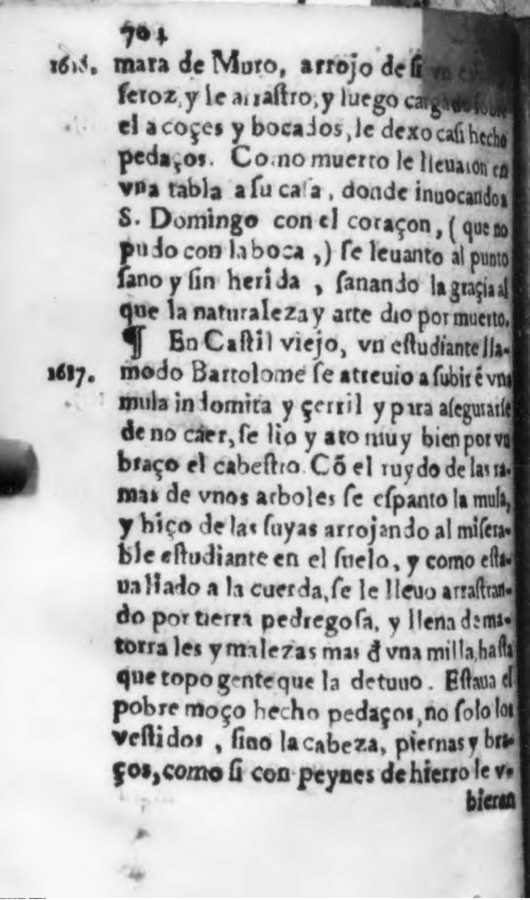 704
1616. mara de Muro, arrojo de ſi vn
feroz, y le arraſtro, y luego cargado ſobre
el a coçes y bocados, le dexo caſi hecho
pedaços. Como muerto le lleuaron en
vna tabla a ſu caſa, donde inuocando a
S. Domingo con el coraçon, ( que no
pudo con la boca ,) ſe leuanto al punto
ſano y ſin herida , ſanando la graçia al
que la naturaleza y arte dio por muerto.
¶ En Caſtil viejo, vn eſtudiante lla-
1617. modo Bartolome ſe atreuio a ſubir ẽ vna
mula indomita y çerril y para aſegurarſe
de no caer, ſe lio y ato muy bien por vn
braço el cabeſtro. Cõ el ruydo de las ra-
mas de vnos arboles ſe eſpanto la mula,
y hiço de las ſuyas arrojando al miſera-
ble eſtudiante en el ſuelo, y como eſta-
ua liado a la cuerda, ſe le lleuo arraſtran-
do por tierra pedregoſa, y llena de ma-
torra les y malezas mas đ vna milla, haſta
que topo gente que la detuuo. Eſtaua el
pobre moço hecho pedaços, no ſolo los
veſtidos , ſino la cabeza, piernas y bra-
ços, como ſi con peynes de hierro le v-
bieran